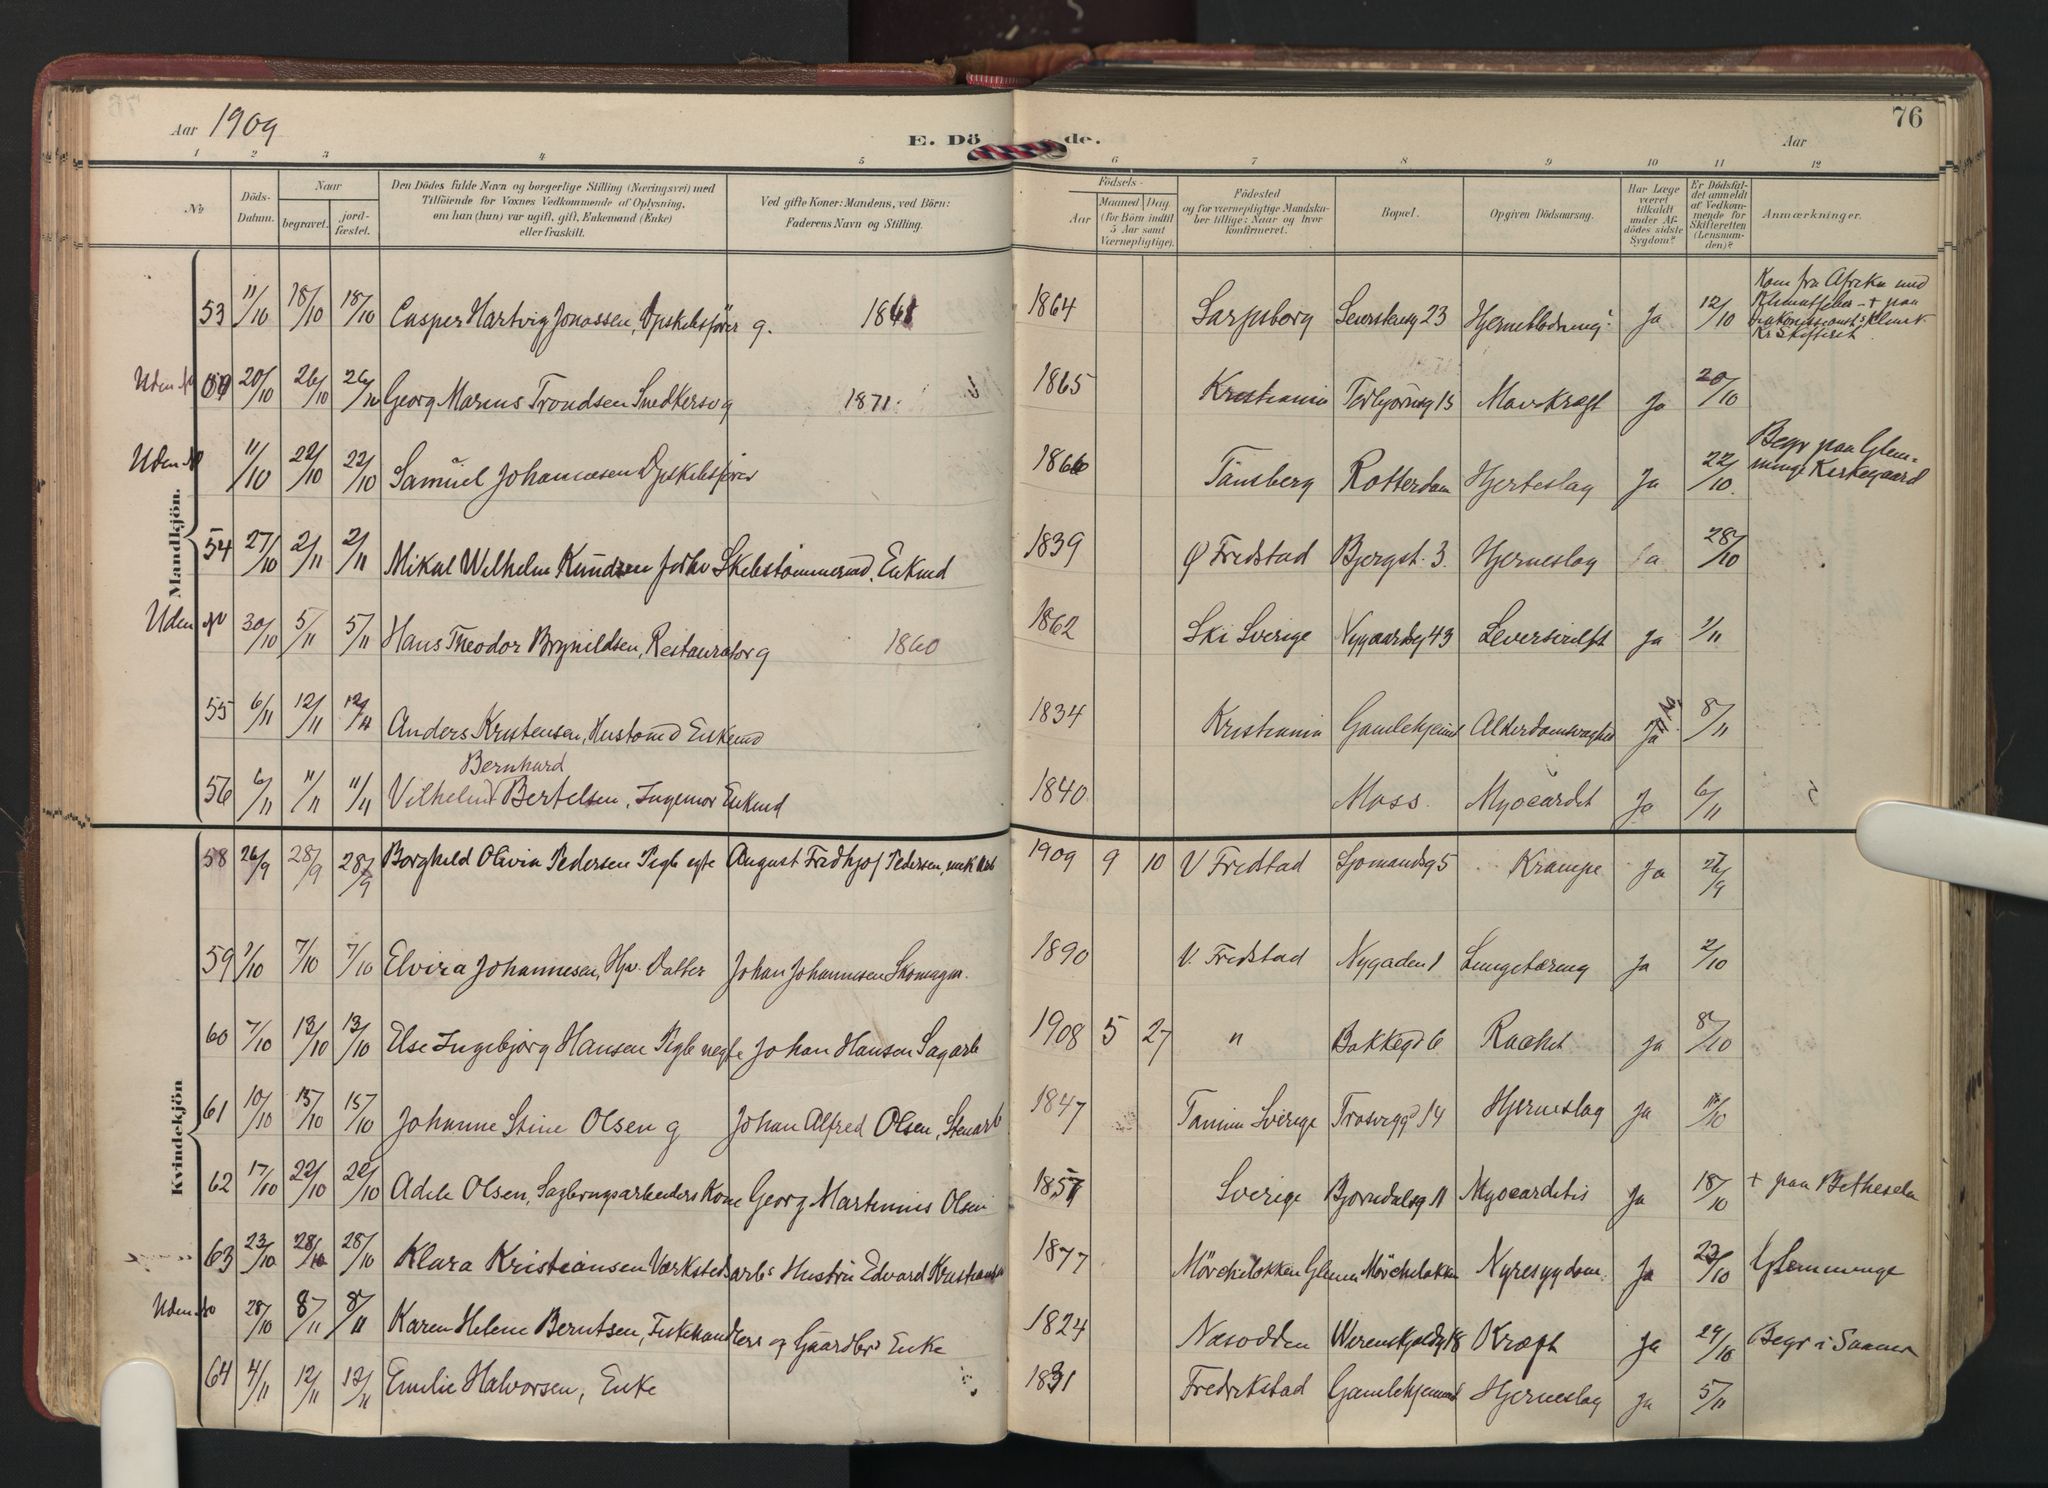 Aar 1909
E. Dö de.
76
Aar
1 2 3 4 5 6 7 8 9 10 11 12
No
Döds-Datum.
Naar
begravet.
jord-fæstet.
Den Dödes fulde Navn og borgerlige Stilling (Næringsvei) med
Tilföiende for Voxnes Vedkommende af Oplysning,
om han (hun) var ugift, gift, Enkemand (Enke)
eller fraskilt.
Ved gifte Koner: Mandens, ved Börn:
Faderens Navn og Stilling.
Födsels-
Aar
Maaned Dag
(for Börn indtil
5 Aar samt
Værnepligtige).
Födested
og for værnepligtige Mandska-
ber tillige: Naar og hvor
konfirmeret.
Bopæl.
Opgiven Dödsaarsag.
Har Læge
været
tilkaldt
under Af-
dödes sidste
Sygdom?
Er Dödsfal-
det anmeldt
af Vedkom-
mende for
Skifteretten
(Lensman-
den)?
Anmærkninger.
Mandkjön.
53 11/10 18/10 18/10 Casper Hartvig Jonassen, Dpskibsförer g. 1861 1864 Sarpsborg 23 Ja 12/10 Kom fra Afrika med
+ paa
Uden No 20/10 26/10 26/10 Georg Marius Trondsen Snedkersv g 1871 1865 Kristiania Torbjörnsg 15 Mavekræft Ja 20/10
Uden No 11/10 22/10 22/10 Samuel Johannesen Dpskibsförer 1866 Tönsberg Rotterdam Hjerteslag Ja 22/10. Begr paa Glem-
minge Kirkegaard
54 27/10 2/11 2/11 Mikal Wilhelm Knudsen Skibstömmermd, Enkmd 1839 Ø Fredstad Bjergst. 3. Hjerneslag Ja 28/10
Uden No 30/10 5/11 5/11 Hans Theodor Brynildsen, Restauratör g 1860 1862 Ski Sverige Nygaardsg 43 Ja 1/11
55 6/11 12/11 12/11 Anders Kristensen, Hustömd Enkemd 1834 Kristiania Gamlehjemmet Alderdomssvaghed 8/11
Bernhard
56 6/11 11/11 11/11 Vilhelm Bertelsen, Ingeniör Enkmd 1840 Moss. Myocardit Ja 6/11
Kvindekjön
58 26/9 28/9 28/9 Borghild Olivia Pedersen Pigb egte August Fridhjof Pedersen, 1909 9 10 V Fredstad Sjömandsg 5 Krampe Ja 26/9
59 1/10 7/10 7/10 Elvira Johannesen, Hjv. Datter Johan Johannesen Skomagm. 1890 V. Fredstad Nygaden 1 Lungetæring Ja 2/10
60 7/10 13/10 13/10 Else Ingebjörg Hansen Pigb uegte Johan Hansen Sagarb 1908 5 27 " Bakkegd 6 Rachit Ja 8/10
61 10/10 15/10 15/10 Johanne Stine Olsen g Johan Alfred Olsen, Stenarb 1847 Tanum Sverige Trosvigg 14 Hjerneslag Ja 11/10
62 17/10 22/10 22/10 Adele Olsen, Sagbrugsarbeiders Kone Georg Martinius Olsen Sverige Bjorndalsg 11 Myocarditis Ja 18/10 + paa Bethesda
63 23/10 28/10 28/10 Klara Kristiansen Værkstedsarbs Hustru Edvard Kristiansen 1877 Mörchelökken Glem Mörchelökken Nyresygdom. Ja 23/10 Glemminge
Uden No 28/10 8/11 8/11 Karen Helene Berntsen, Fiskehandlers og Gaardbrs Enke 1824 Næsodden Werenskjoldsg 18 Kræft Ja 29/10 Begr i
64 4/11 12/11 12/11 Emilie Halvorsen, Enke 1831 Fredrikstad Gamlehjemmet Hjerneslag Ja 5/11